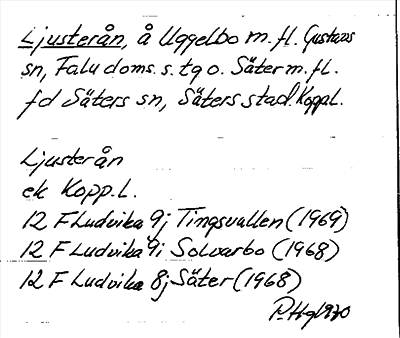 Ljusterån, å Uggelbo m. fl. Gustavs
sn, Falu doms. s. tg o. Säter m. fl.
fd Säters sn, Säters stad. Kopp.L.
Ljusterån
ek Kopp.L.
12 F Ludvika 9j Tingsvallen (1969)
12 F Ludvika 9i Solvarbo (1968)
12 F Ludvika 8j Säter (1968)
P. Hg 1970